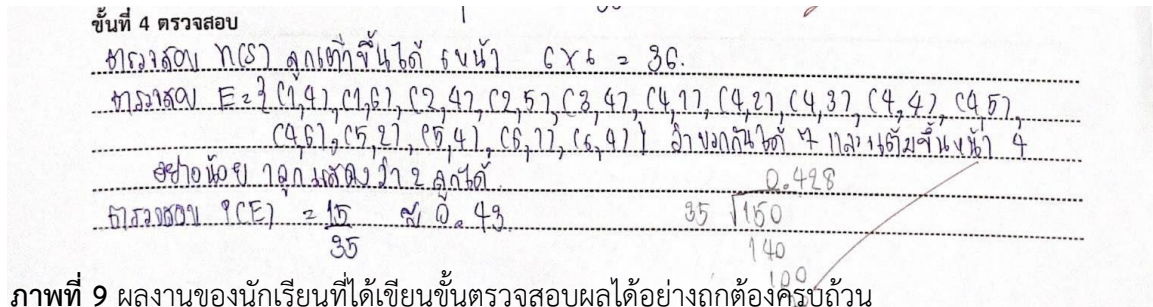 ขั้นที่ 4 ตรวจสอบ
ตรวจสอบ n(S) ลูกเต๋าขึ้นได้ 6 หน้า 6 x 6 = 36.
ตรวจสอบ E = { (1,4), (1,6), (2,4), (2,5), (3,4), (4,1), (4,2), (4,3), (4,4), (4,5),
(4,6), (5,2), (5,4), (6,1), (6,4) } ถ้าบวกกันได้ 7 และแต้มขึ้นหน้า 4
อย่างน้อย 1 ลูกแสดงว่า 2 ลูกได้.
0.428
ตรวจสอบ P(E) = 15/35 ≈ 0.43.
35 √150
140
100
ภาพที่ 9 ผลงานของนักเรียนที่ได้เขียนขั้นตรวจสอบผลได้อย่างถูกต้องครบถ้วน